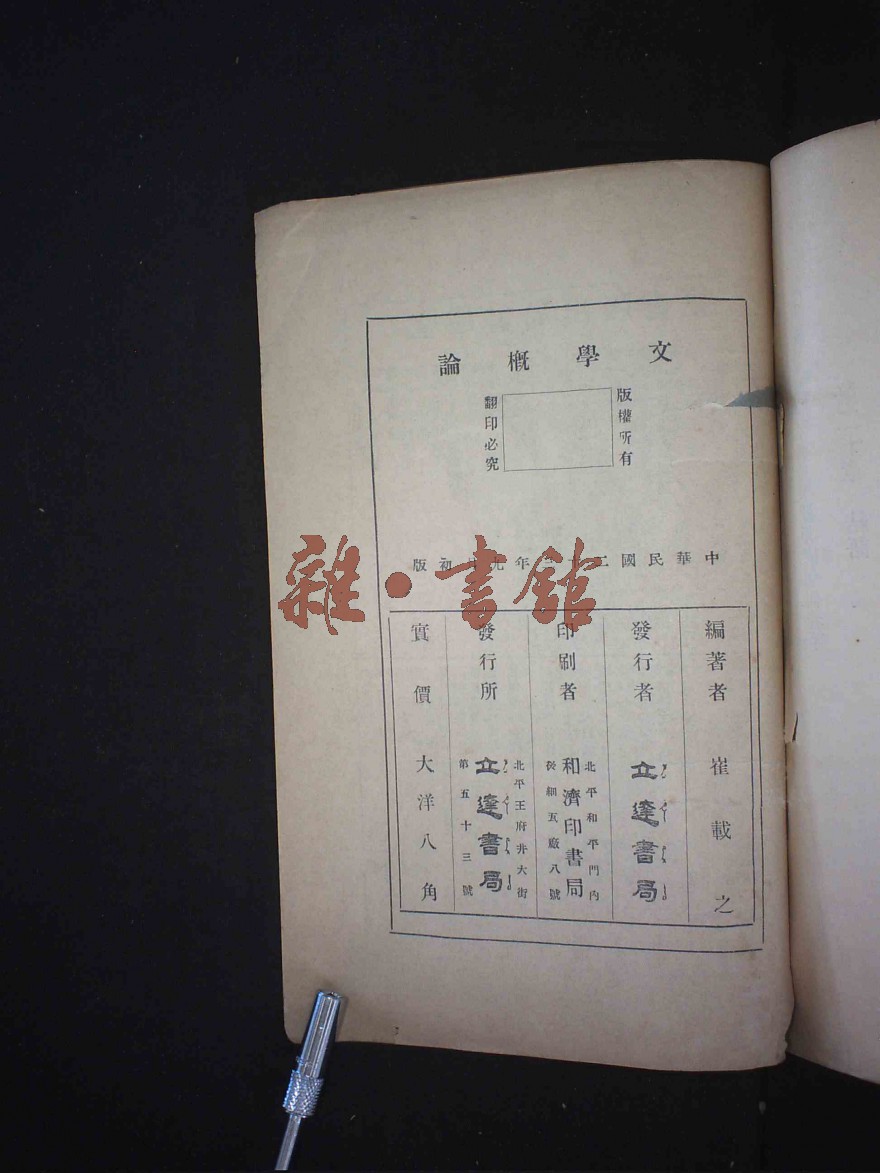 文學概論
版權所有
翻印必究
中華民國二十年九月初版
編著者 崔載之
發行者 立達書局
印刷者 和濟印書局
北平和平門內
後細瓦廠八號
發行所 立達書局
北平王府井大街
第五十三號
實價 大洋八角
雜·書館